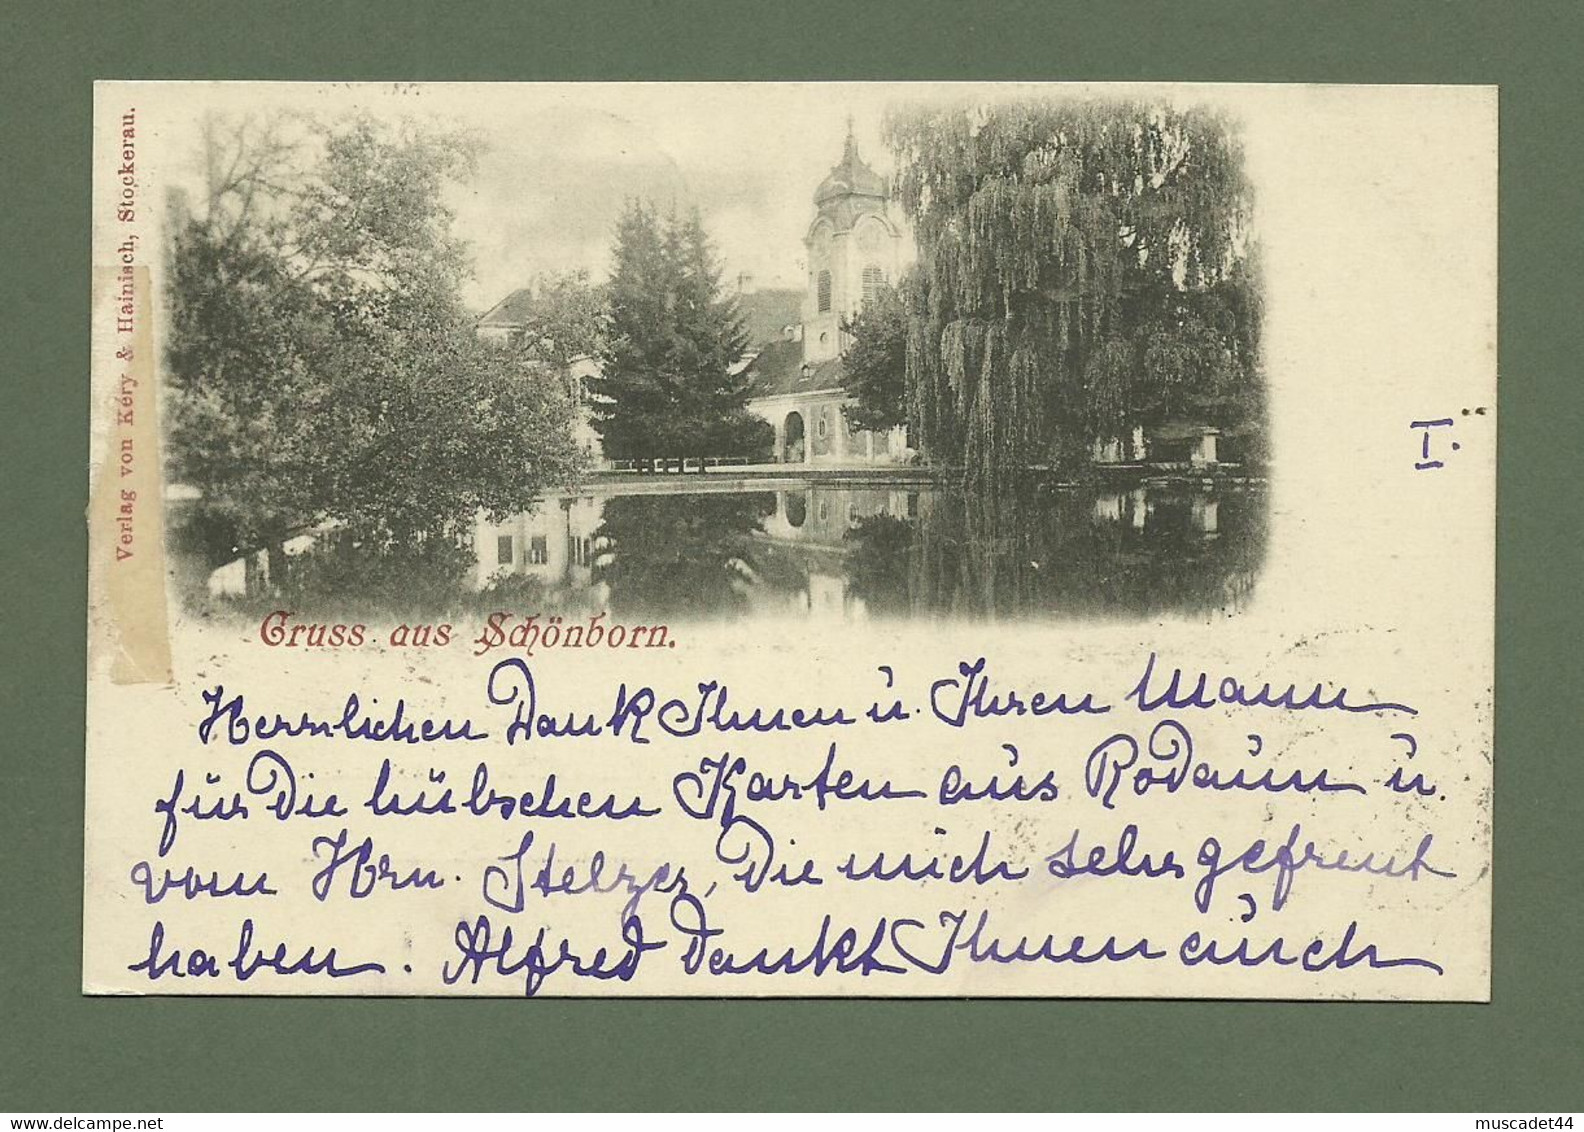 Verlag von Kéry & Hainisch, Stockerau.
I.
Gruss aus Schönborn.
Herrlichen Dank Ihnen u. Ihren Mann
für die hübschen Karten aus Rodaun u.
vom Hrn. Stelzer, die mich sehr gefreut
haben. Alfred dankt Ihnen auch
www.delcampe.net
muscadet44